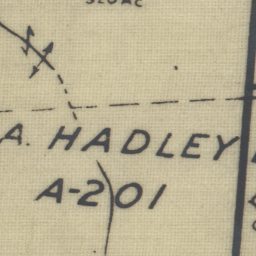 A. HADLEY
A-201